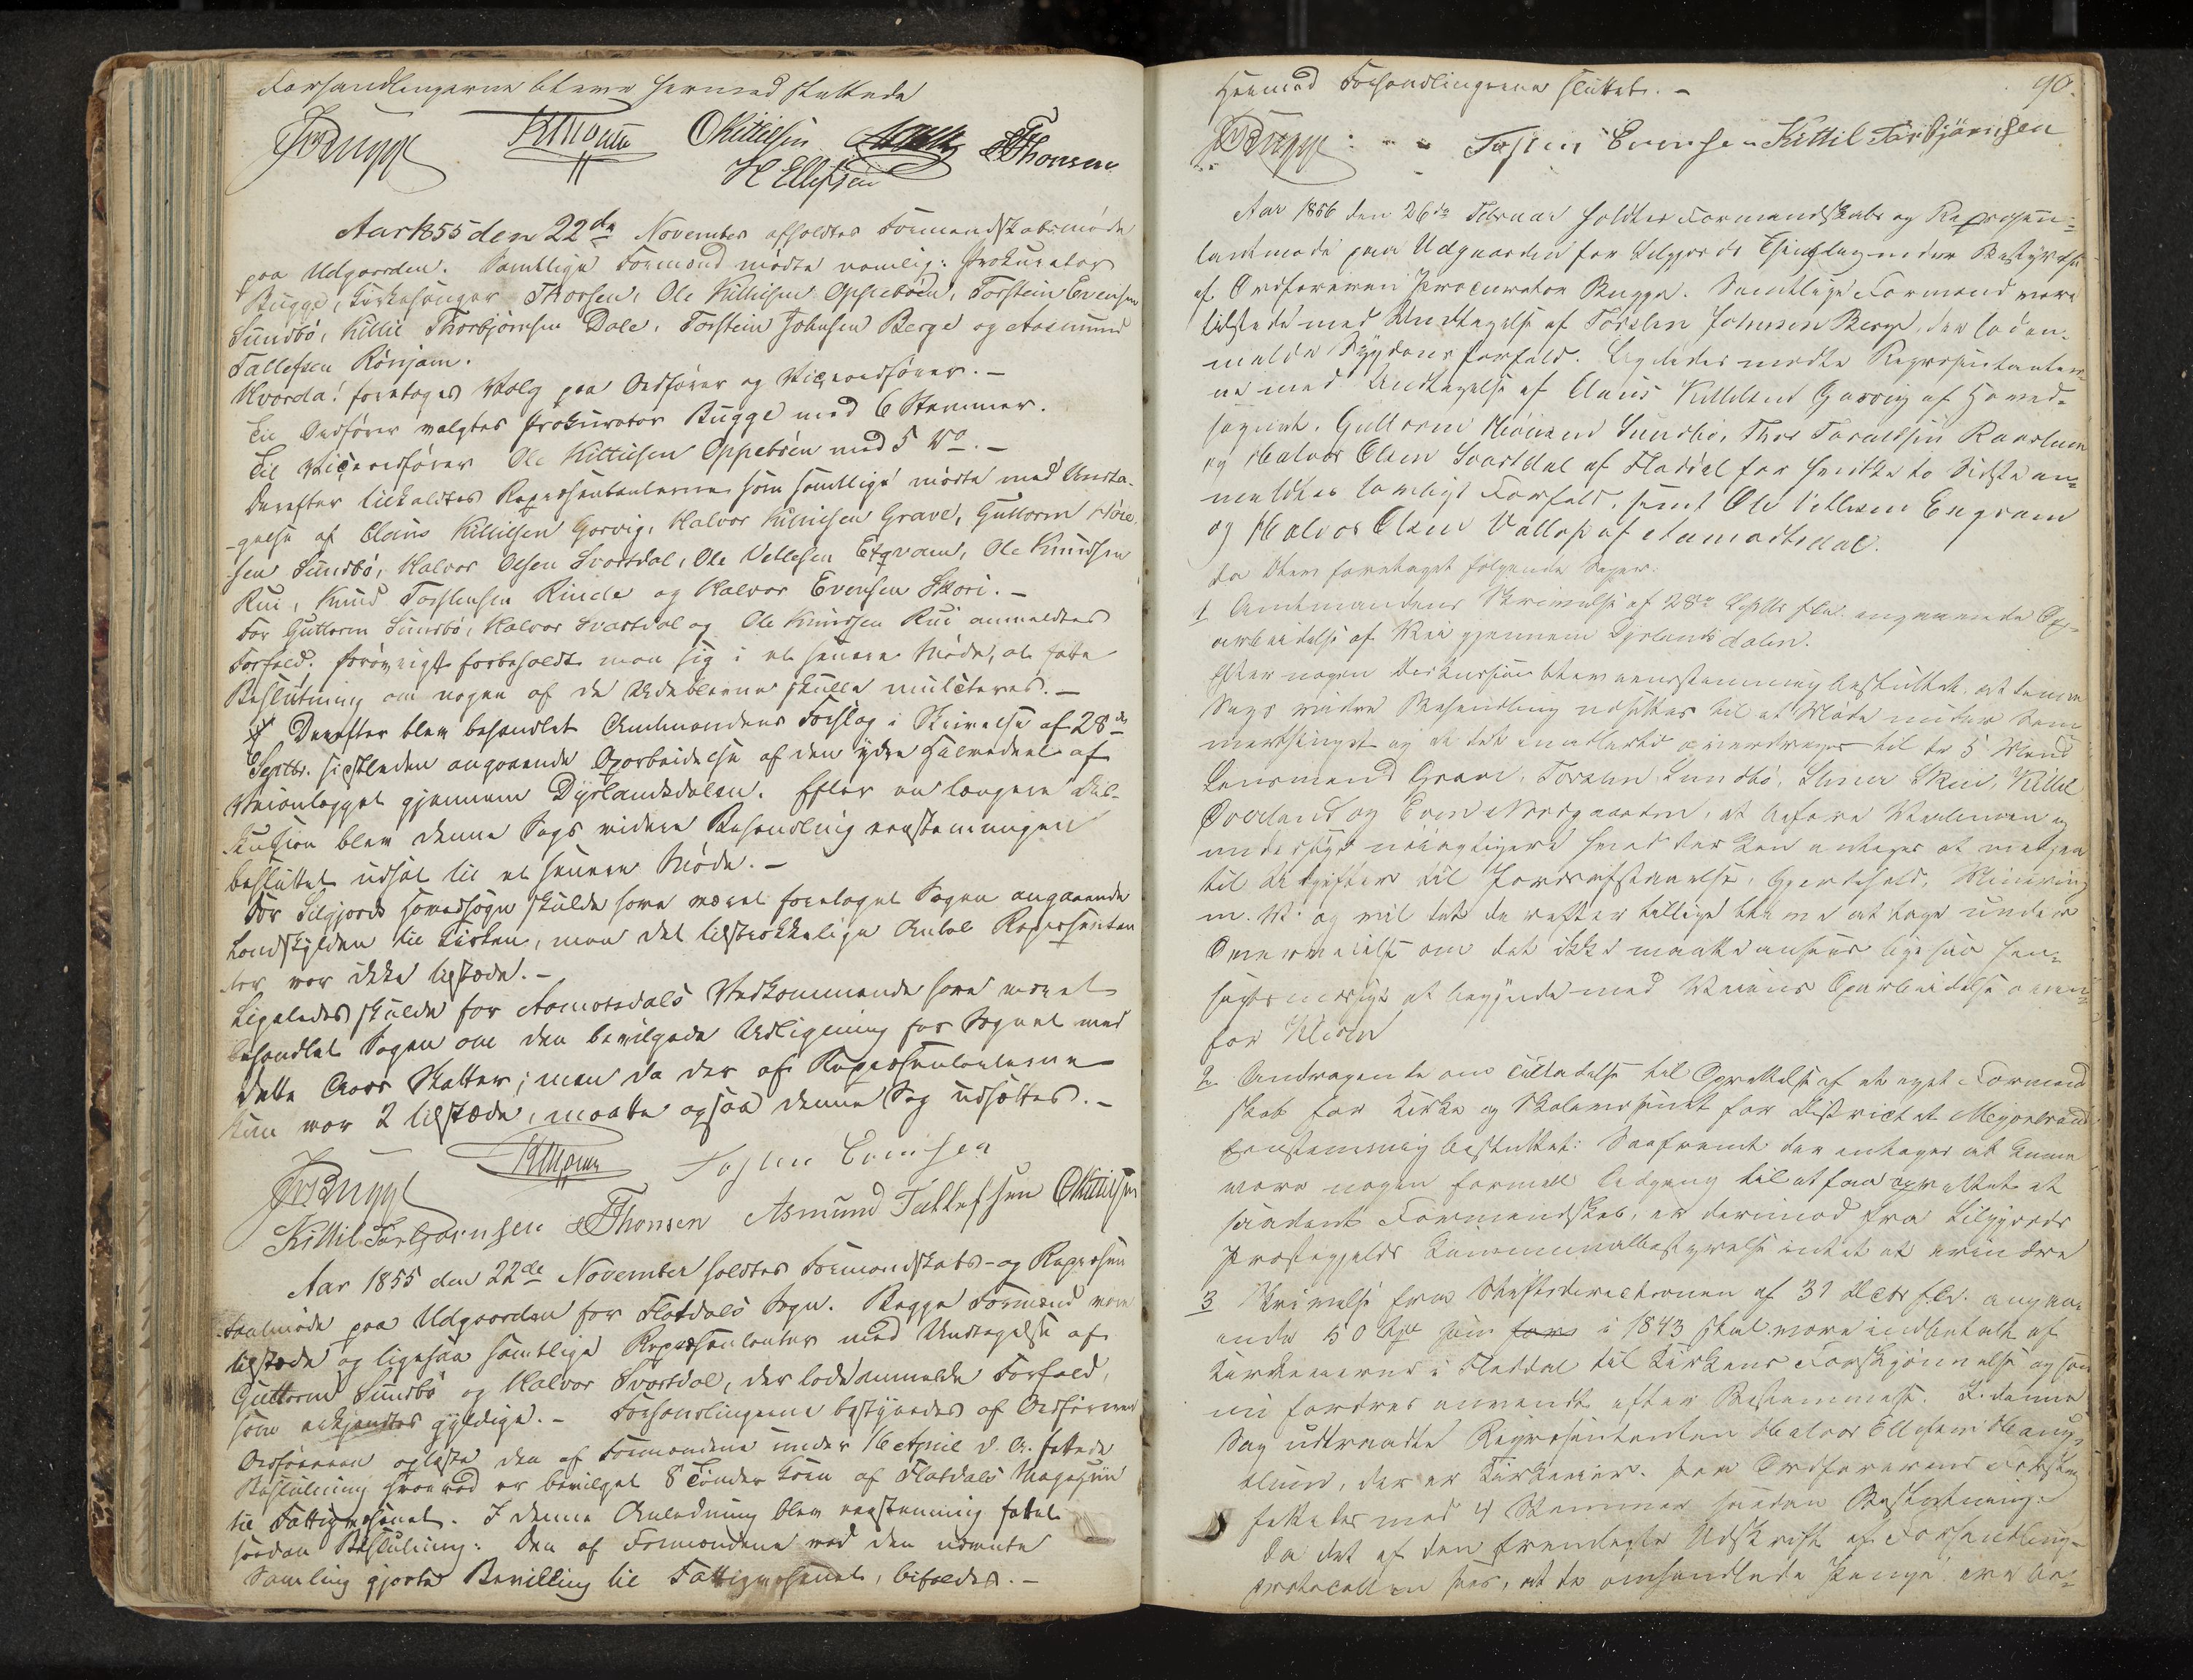 Forhandlingerne bleve hermed sluttede
JBugge KThorsen OKittilsen AAase SThonsen
H Ellefsen
Aar 1855 den 22de November afholdtes Formandskabsmøde
paa Udgaarden. Samtlige Formænd mødte nemlig: Prokurator
Bugge, Kirkesanger Thorsen, Ole Kittilsen Oppebøen, Torstein Evensen
Sundbö, Kittil Thorbjörnsen Dale, Torstein Johnsen Berge og Aasmund
Tallefsen Rönjam.
Hvorda! foretoges Valg paa Ordfører og Viceordfører. –
Til Ordfører valgtes Prokurator Bugge med 6 Stemmer.
Til Viceordfører Ole Kittilsen Oppebøen med 5 Do. –
Derefter tilkaldtes Repræsentanterne som samtlige mødte med Undta-
gelse af Claus Kittilsen Garvig, Halvor Kittilsen Grave, Guttorm
sen Sundbö, Halvor Olsen Svartdal, Ole Vetlesen Egqvam, Ole Knudsen
Rui, Knud Torstensen Rinde og Halvor Evensen Skori. –
For Guttorm Sundbö, Halvor Svartdal og Ole Knudsen Rui anmeldtes
Forfald. Forøvrigt forbeholdt man sig i et senere Møde, at fatte
Beslutning om nogen af de Udeblevne skulle mulcteres. –
Derefter blev behandlet Amtmandens Forslag i Skrivelse af 28de
Septbr. sidstleden angaaende Oparbeidelse af den ydre Halvedeel af
Veianlægget gjennem Dyrlandsdalen. Efter en længere Dis-
kussion blev denne Sags videre Behandling eenstemmigen
besluttet udsat til et senere Møde. –
For Silgjords Hovedsogn skulde have været foretaget Sagen angaaende
Landskylden til Kirken, men det tilstrækkelige Antal Repræsentan
ter var ikke tilstede. –
Ligeledes skulde for Aamotsdals Vedkommende have været
behandlet Sagen om den bevilgede Udligning for Sognet med
dette Aars Skatter; men da der af Repræsentanterne
kun var 2 tilstæde, maatte ogsaa denne Sag udsættes. –
JBugge KThorsen Tosten Evensen
Kittil Torbjörnsen SThonsen Asmund Tallefsen OKittilsen
Aar 1855 den 22de November holdtes Formandskabs- og Repræsen
tantmøde paa Udgaarden for Flatdals Sogn. Begge Formænd vare
tilstede og ligesaa samtlige Repræsentanter med Undtagelse af
Guttorm Sundbö og Halvor Svartdal, der lod anmelde Forfald,
som erkjendtes gyldige. – Forhandlingerne bestyredes af Ordføreren
Ordføreren oplæste den af Formændene under 16 April d. A. fattede
Beslutning hvorved er bevilget 8 Tönder Korn af Flatdals Magasin
til Fattigvæsenet. I denne Anledning blev eenstemmig fattet
saadan Beslutning: Den af Formændene ved den nævnte
Samling gjorte Bevilling til Fattigvæsenet, bifaldes. –
90.
Hermed Forhandlingerne sluttet. –
JBugge Tosten Evensen Kittil Torbjörnsen
Aar 1856 den 26de Februar holdtes Formandskabs og Repræsen-
tantmøde paa Udgaarden for Silgjords Thinglag under Bestyrelse
af Ordføreren Procurator Bugge. Samtlige Formænd vare
tilstede med Undtagelse af Torsten Johnsen Berge, der lod an-
melde Sygdoms forfald. Ligeledes mødte Repræsentanter-
ne med Undtagelse af Claus Kittilsen Garvig af Hoved-
sognet, Guttorm Sundbö, Thor Taraldsen Raaslum
og Halvor Olsen Svartdal af Flatdal for hvilke to Sidste an-
meldtes lovligt Forfald, samt Ole Vetlesen Eeqvam
og Halvor Olsen Vallap af Aamodtsdal.
da blev foretaget følgende Sager:
1 Amtmandens Skrivelse af 28de Septbr f.A. angaaende Op-
arbeidelse af Vei gjennem Dyrlandsdalen.
Efter nogen Diskussion blev eenstemmig besluttet, at denne
Sags videre Behandling udsættes til et Møde under Som-
merthinget og at det imidlertid overdrages til de 5 Mænd
Lensmand Grave, Torsten Sundbö, Steiner Skori, Kittil
Oveland og Even Nordgaarden, at befare Veilinien og
undersöge nöiagtigere hvad der kan antages at medgaa
til Udgifter til Jordafstaaelse, Gjerdehold, Minering
m. V. og vil det derefter tillige blive at tage under
Overveielse om det ikke maatte ansees ligesaa hen-
sigtsmæssigt at begynde med Veiens Oparbeidelse oven-
for Kleven
2 Andragende om Tilladelse til Oprettelse af et eget Formand
skab for Kirke og Skolevæsenet for Districtet Meyerland
Eenstemmig besluttet: Saafremt der antages at kunne
være nogen formel Adgang til at faa oprettet et
saadant Formandskab, er derimod fra Silgjords
Præstegjelds Kommunalbestyrelse intet at erindre
3 Skrivelse fra Stiftsdirectionen af 31 Decbr f.A. angaa-
ende 50 Spd som i 1843 skal være indbetalt af
Kirkeeierne i Flatdal til Kirkens Forskjønnelse og som
nu fordres anvendt efter Bestemmelse. I denne
Sag udtraadte Repræsentanten Halvor Ellefsen Haug-
alund, der er Kirkeeier. Paa Ordførerens Forslag
fattedes med 4 Stemmer saadan Beslutning:
Da det af den fremlagte Udskrift af Forhandlings-
protocollen sees, at de omhandlede Penge ere be-